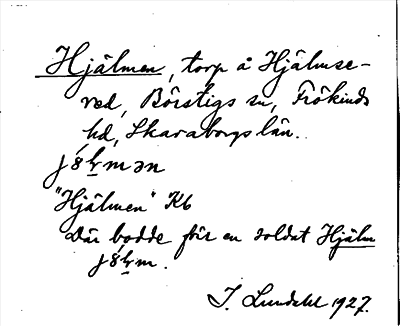 Hjälmen, torp å Hjälmse-
red, Börstigs sn, Frökinds
hd, Skaraborgs län.
"Hjälmen" Kb
Där bodde förr en soldat Hjälm
I. Lundahl 1927.